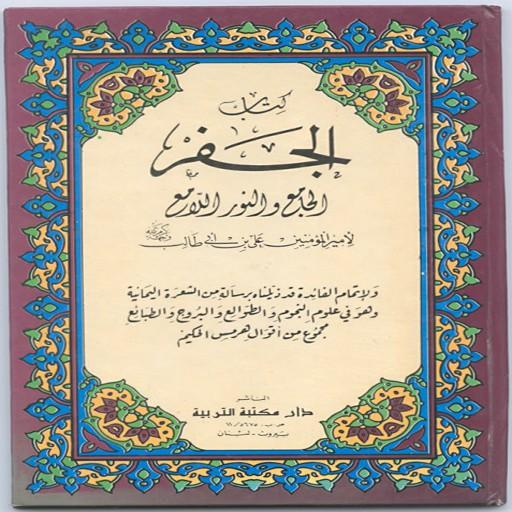 كتاب
الجفر
الجامع والنور اللامع
لأمير المؤمنين علي بن أبي طالب
ولإتمام الفائدة قد ذيلناه برسالة من الشعرة اليمانية
وهو في علوم النجوم والطوالع والبروج والطبائع
مجموع من أقوال هرمس الحكيم
الناشر
دار مكتبة التربية
بيروت - لبنان